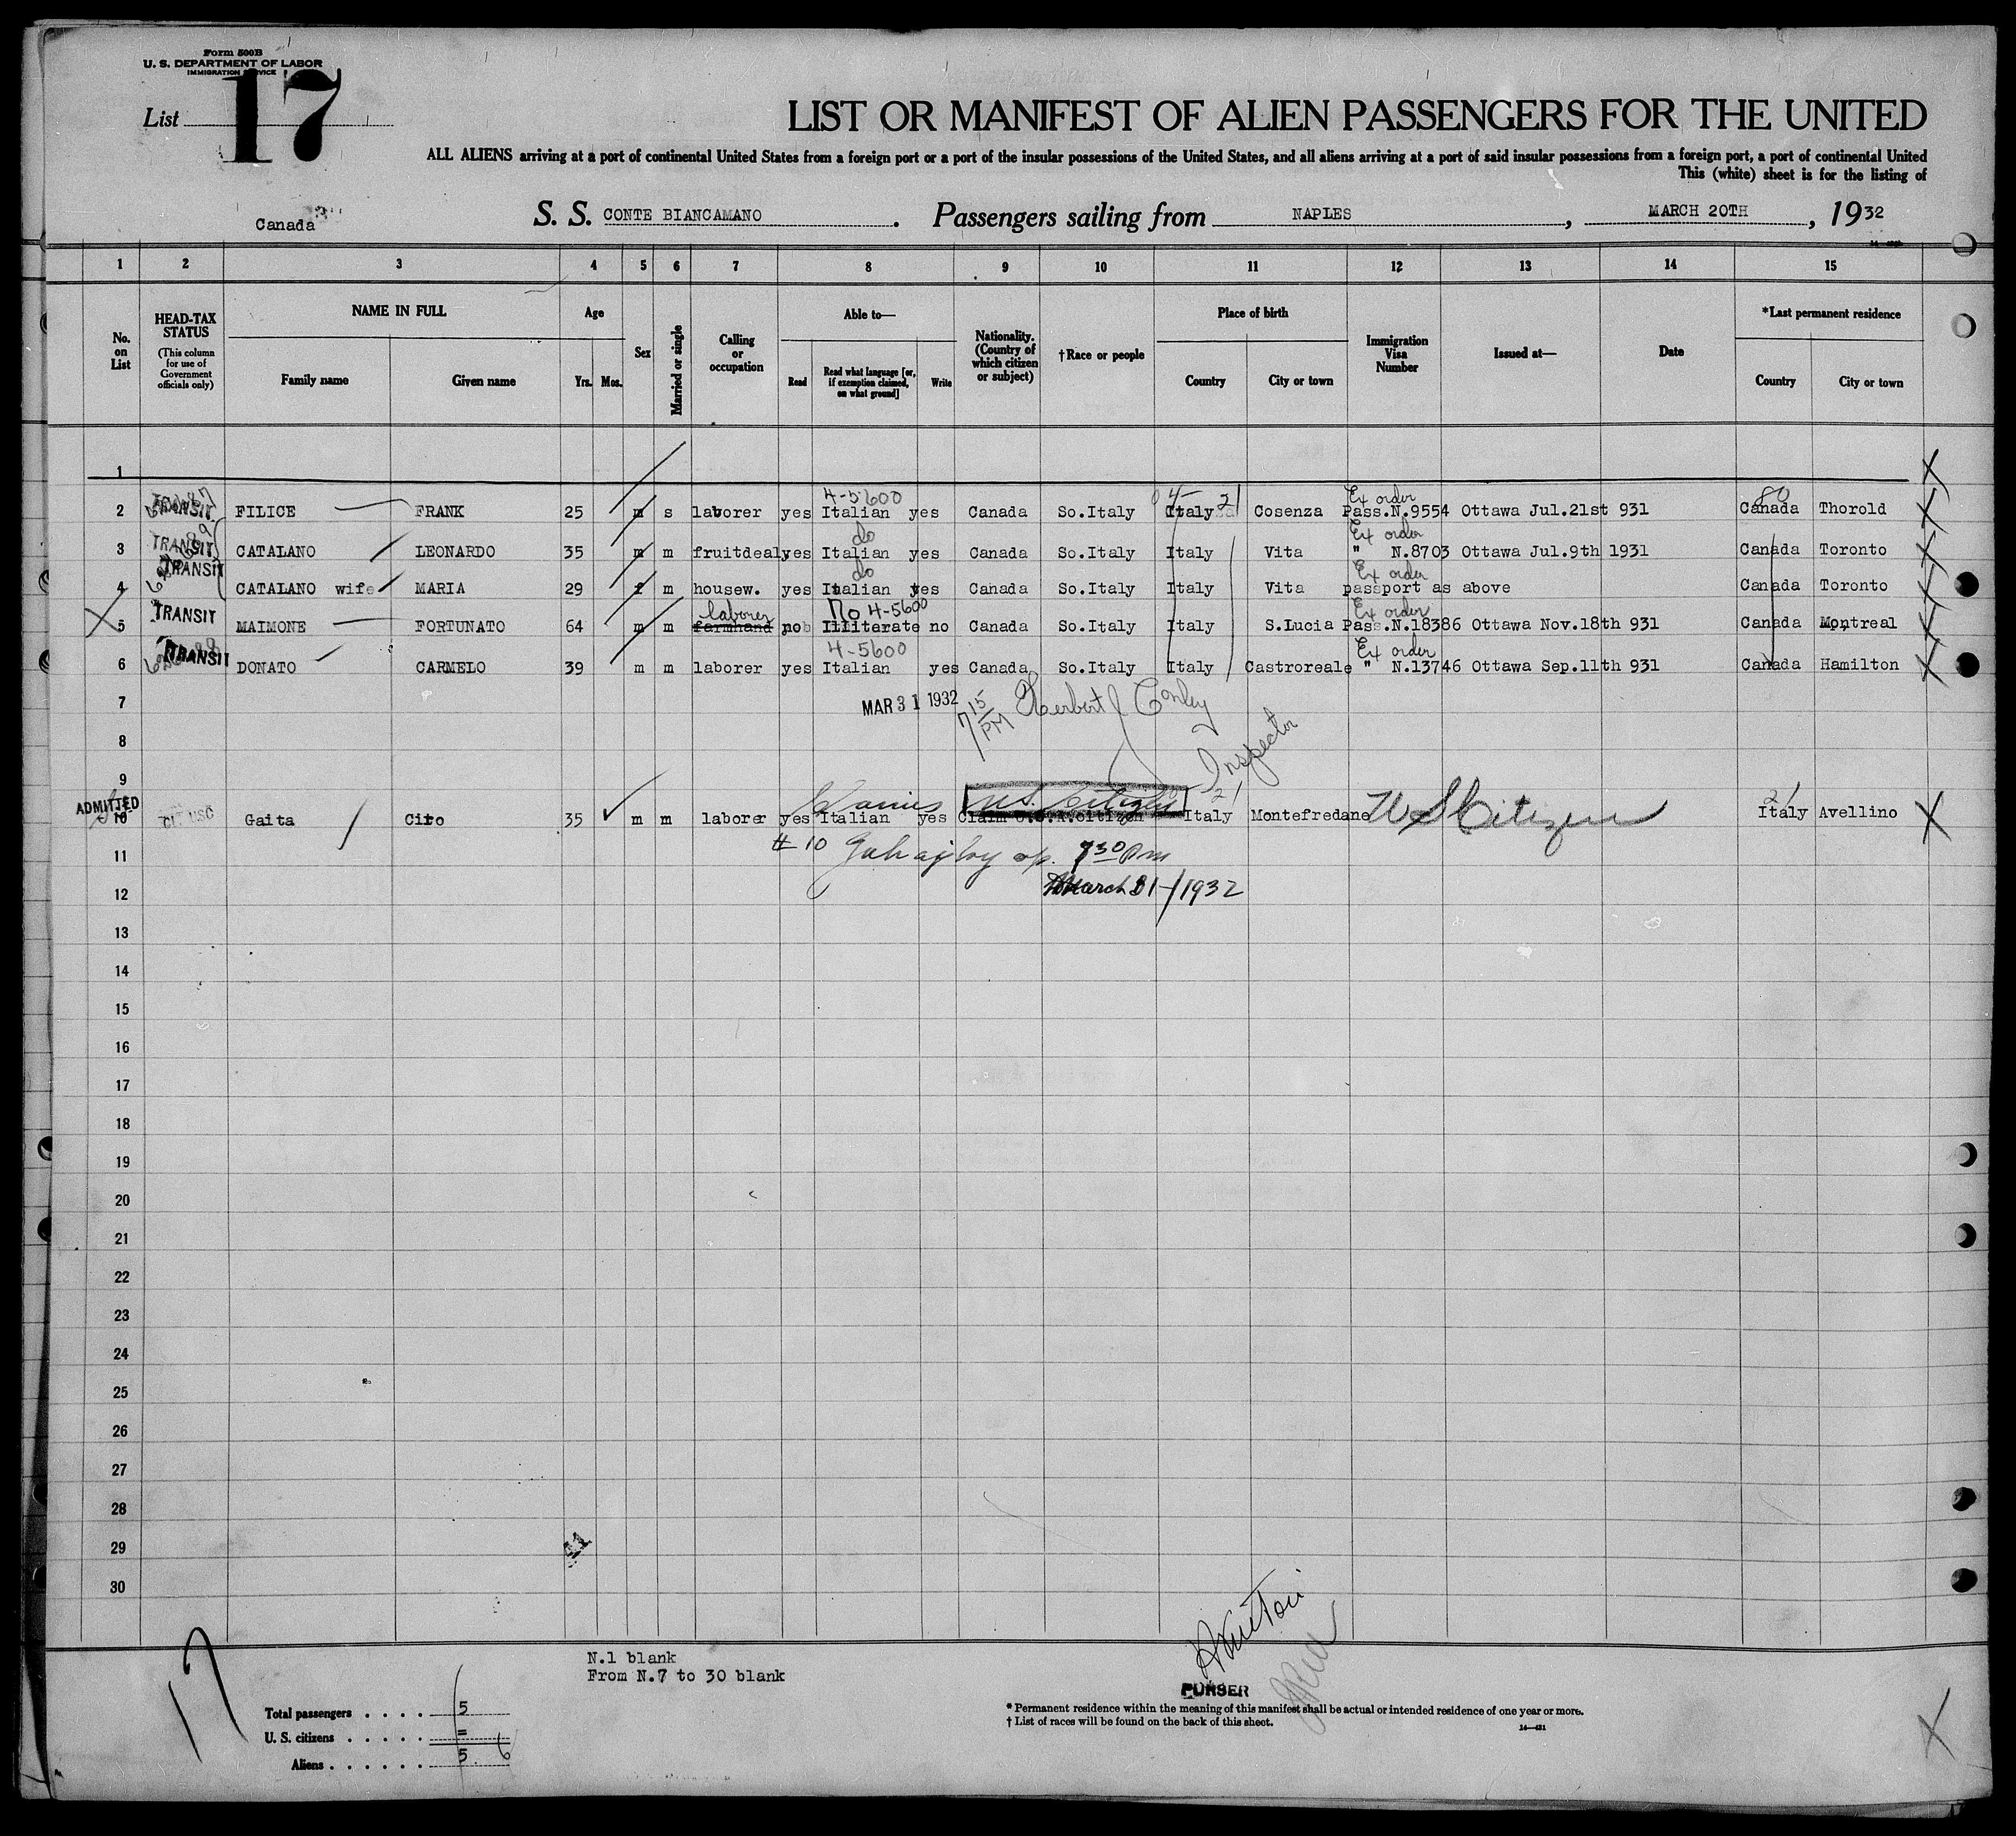 Form 500B
U. S. DEPARTMENT OF LABOR
IMMIGRATION SERVICE
List 17
LIST OR MANIFEST OF ALIEN PASSENGERS FOR THE UNITED
ALL ALIENS arriving at a port of continental United States from a foreign port or a port of the insular possessions of the United States, and all aliens arriving at a port of said insular possessions from a foreign port, a port of continental United
This (white) sheet is for the listing of
Canada S. S. CONTE BIANCAMANO. Passengers sailing from NAPLES, MARCH 20TH, 1932
1 2 3 4 5 6 7 8 9 10 11 12 13 14 15
No. on List
HEAD-TAX STATUS
(This column for use of Government officials only)
NAME IN FULL
Family name Given name
Age
Yrs. Mos.
Sex
Married or single
Calling or occupation
Able to—
Read
Read what language [or, if exemption claimed, on what ground]
Write
Nationality. (Country of which citizen or subject)
†Race or people
Place of birth
Country City or town
Immigration Visa Number
Issued at—
Date
*Last permanent residence
Country City or town
1
4-5600 4- 21 Ex order 80
2 TRANSIT FILICE FRANK 25 m s laborer yes Italian yes Canada So.Italy Italy Cosenza Pass.N.9554 Ottawa Jul.21st 931 Canada Thorold X
do Ex order
3 TRANSIT CATALANO LEONARDO 35 m m fruitdeal yes Italian yes Canada So.Italy Italy Vita " N.8703 Ottawa Jul.9th 1931 Canada Toronto X
do Ex order
4 TRANSIT CATALANO wife MARIA 29 f m housew. yes Italian yes Canada So.Italy Italy Vita passport as above Canada Toronto X
laborer No 4-5600 Ex order
X 5 TRANSIT MAIMONE FORTUNATO 64 m m farmhand no Illiterate no Canada So.Italy Italy S.Lucia Pass.N.18386 Ottawa Nov.18th 931 Canada Montreal X
4-5600 Ex order
6 TRANSIT DONATO CARMELO 39 m m laborer yes Italian yes Canada So.Italy Italy Castroreale " N.13746 Ottawa Sep.11th 931 Canada Hamilton X
7 MAR 31 1932 7 15 PM Herbert J Conley
8 Inspector
9
U.S. Citizen 21 21
ADMITTED 10 Gaita Ciro 35 m m laborer yes Italian yes Claim U.S.A.citizen Italy Montefredane U S Citizen Italy Avellino X
11 # 10 7 30 pm
12 March 31/1932
13
14
15
16
17
18
19
20
21
22
23
24
25
26
27
28
29
30
17
N.1 blank
From N.7 to 30 blank
PURSER
Total passengers . . . . 5
U. S. citizens . . . . . =
Aliens . . . . . . 5 6
* Permanent residence within the meaning of this manifest shall be actual or intended residence of one year or more.
† List of races will be found on the back of this sheet.
14—431
X